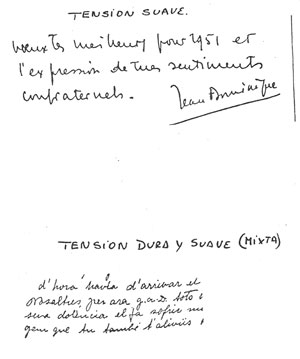 TENSION SUAVE.
voeux les meilleurs pour 1951 et
l'expression de mes sentiments
confraternels.
Jean Dominique
TENSION DURA Y SUAVE (MIXTA)
d'hora havia d'arrivar et
per ara g.a.D. tots
seva dolencia el fa sofrir
que tu també t'aliviis